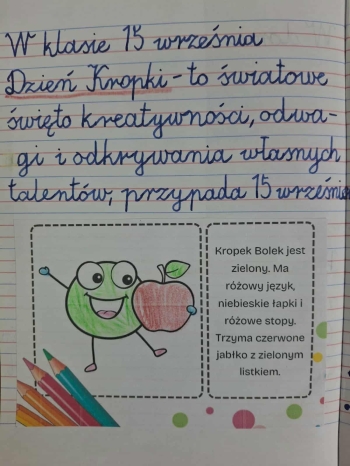 W klasie 15 września
Dzień Kropki - to światowe
święto kreatywności, odwa-
gi i odkrywania własnych
talentów, przypada 15 wrześnie
Kropek Bolek jest
zielony. Ma
różowy język,
niebieskie łapki i
różowe stopy.
Trzyma czerwone
jabłko z zielonym
listkiem.